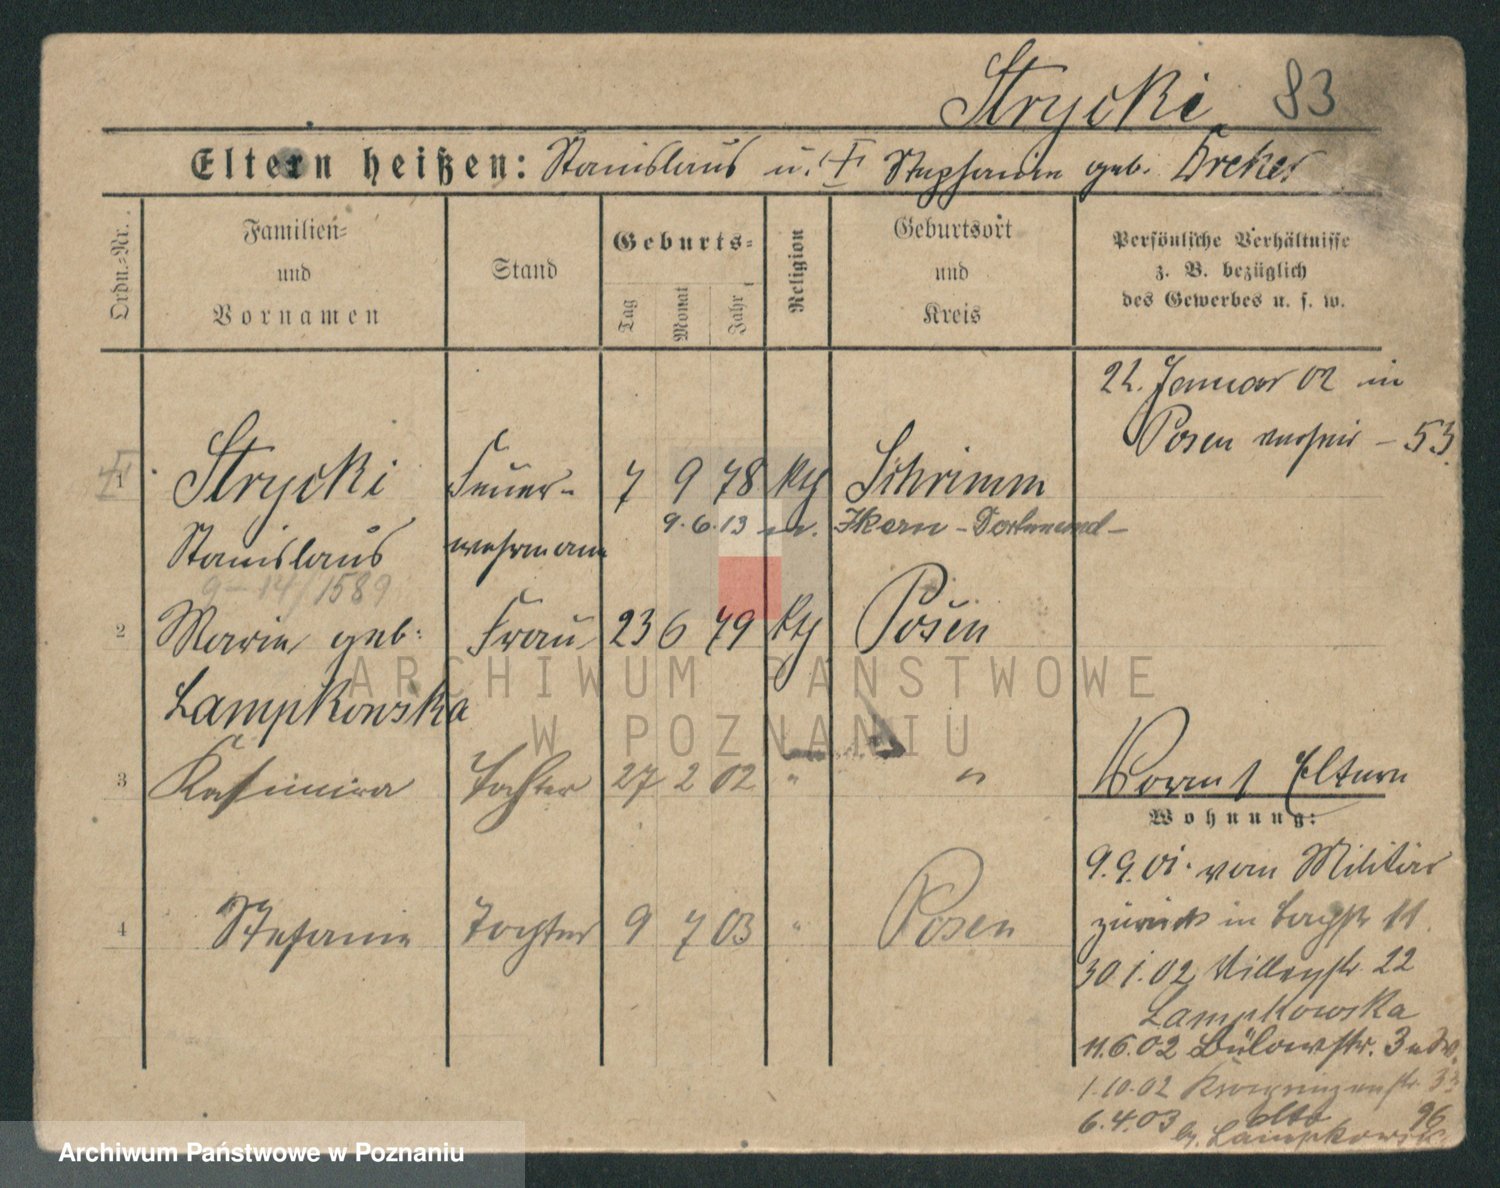 Strycki 83
Eltern heißen: Stanislaus u. Stephanie geb. Dreker
Ordn.-Nr.
Familien-
und
Vornamen
Stand
Geburts-
Tag
Monat
Jahr
Religion
Geburtsort
und
Kreis
Persönliche Verhältnisse
z. B. bezüglich
des Gewerbes u. s. w.
22. Januar 02 in
Posen - 53
1 Strycki Feuer- 7 9 78 kth Schrimm
9.6.13 n. Ikern - Dortmund -
Stanislaus wehrmann
9-14/1589
2 Marie geb. Frau 23 6 79 kth Posen
Lampkowska
3 Kasimira Tochter 27 2 02 " "
Eltern
Wohnung:
9.9.01. vom Militär
zurück in 11.
4 Stefanie Tochter 9 7 03 " Posen
30.1.02 22
Lampkowska
11.6.02 Bülowstr. 3
1.10.02
6.4.03 96
ARCHIWUM PAŃSTWOWE
W POZNANIU
Archiwum Państwowe w Poznaniu